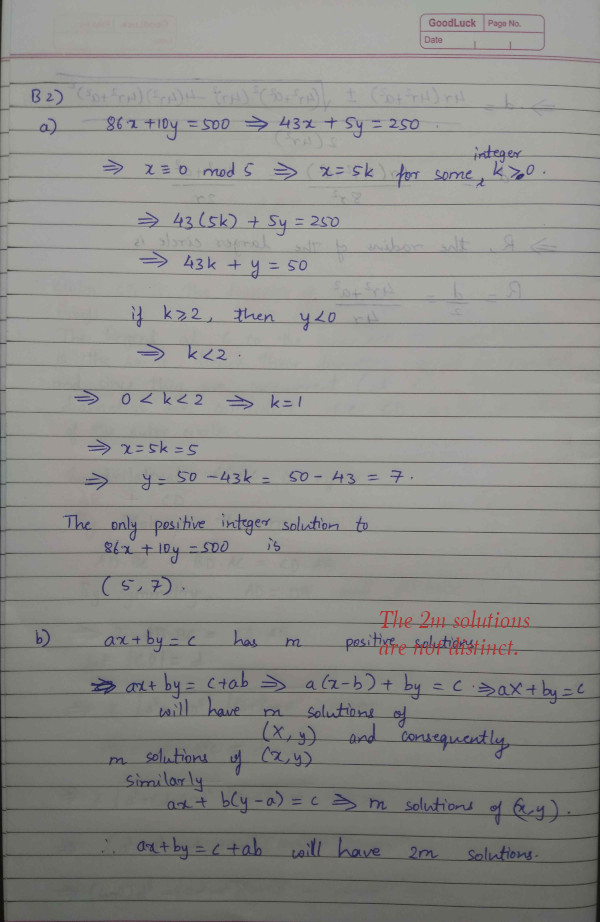 GoodLuck Page No.
Date
B2)
a) 86x + 10y = 500 ⇒ 43x + 5y = 250.
⇒ x ≡ 0 mod 5 ⇒ x = 5k for some integer k > 0.
⇒ 43(5k) + 5y = 250
⇒ 43k + y = 50
if k ≥ 2, then y < 0
⇒ k < 2.
⇒ 0 < k < 2 ⇒ k = 1
⇒ x = 5k = 5
⇒ y = 50 - 43k = 50 - 43 = 7.
The only positive integer solution to
86x + 10y = 500 is
(5, 7).
The 2m solutions
are not distinct.
b) ax + by = c has m positive solutions
⇒ ax + by = c + ab ⇒ a(x - b) + by = c. ⇒ aX + by = c
will have m solutions of
(X, y) and consequently
m solutions of (x, y)
similarly
ax + b(y - a) = c ⇒ m solutions of (x, y).
∴ ax + by = c + ab will have 2m solutions.